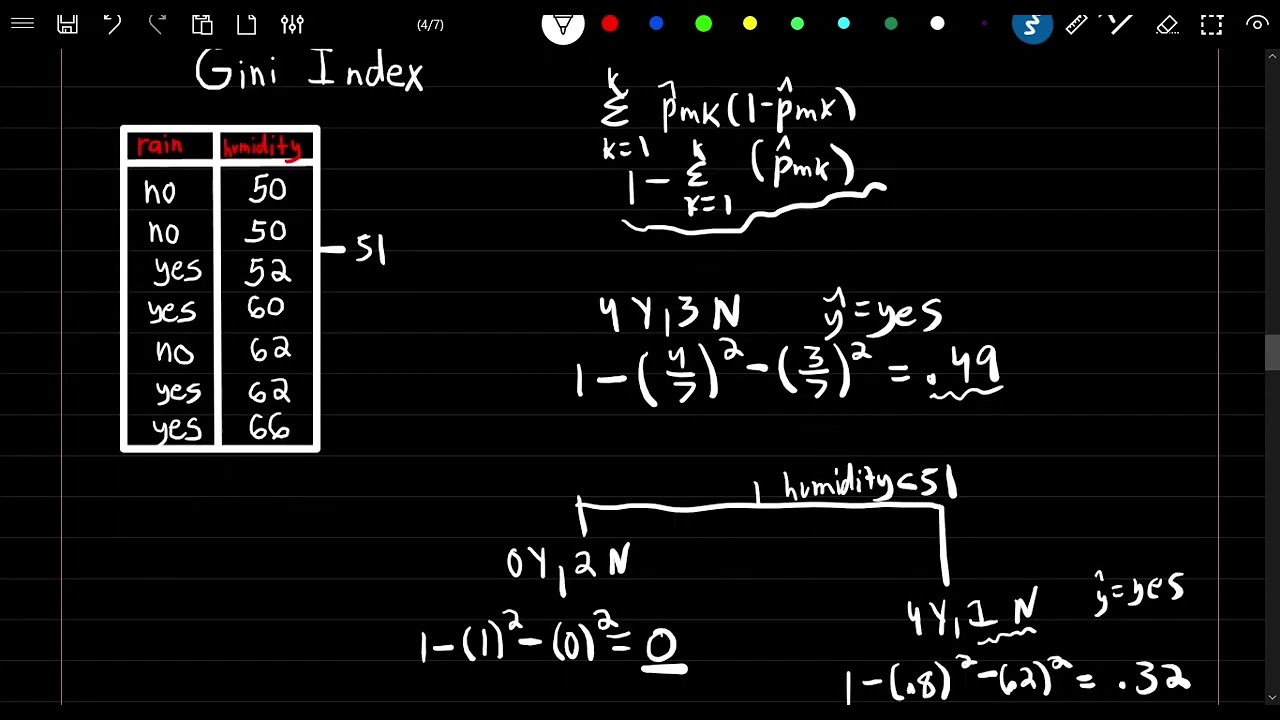 (4/7)
Gini Index
rain humidity
no 50
no 50
yes 52
yes 60
no 62
yes 62
yes 66
— 51
K Σ k=1 p̂mk(1-p̂mk)
1 - K Σ k=1 (p̂mk)
4Y,3N ŷ=yes
1-(4/7)²-(3/7)²=.49
humidity<51
0Y,2N
1-(1)²-(0)²=0
4Y,1N ŷ=yes
1-(.8)²-(.2)²=.32